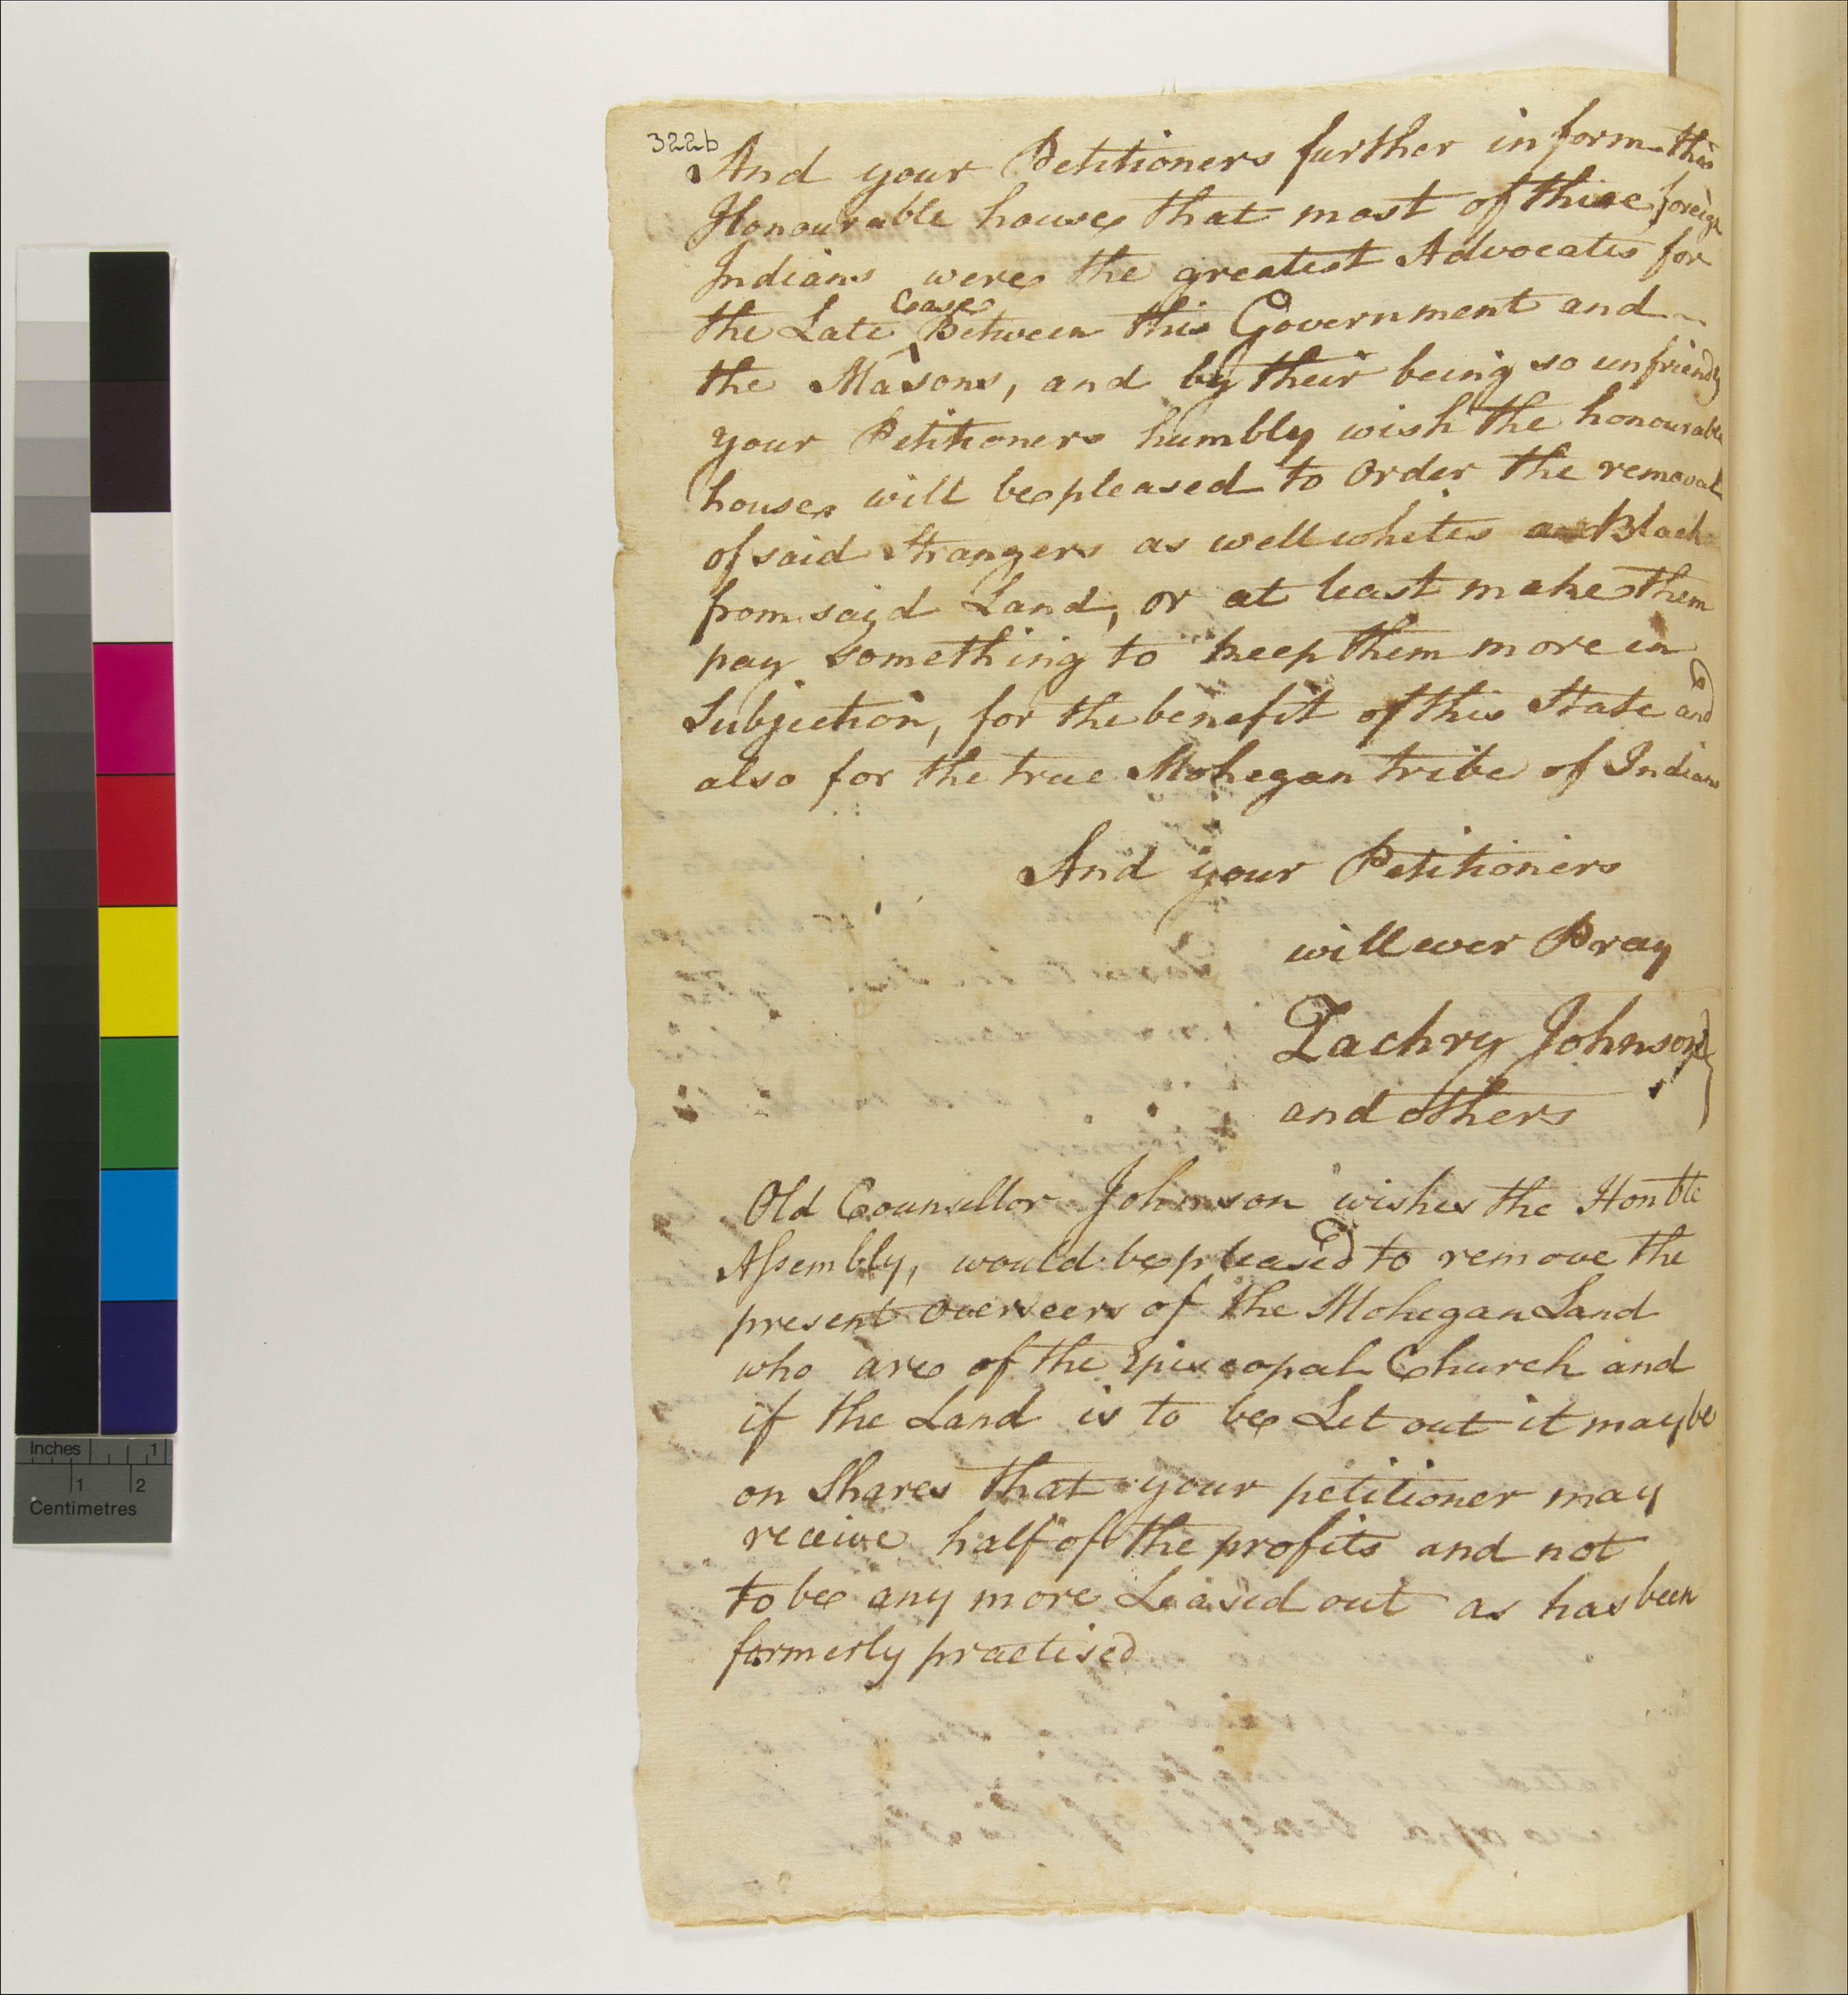 322b
And your Petitioners further inform this
Honourable house that most of these foreign
Indians were the greatest Advocates for
the Late Case Between this Government and
the Masons, and by their being so unfriendly
your Petitioners humbly wish the honourable
house will be pleased to Order the removal
of said Strangers as well whites as Blacks
from said Land, or at least make them
pay something to keep them more in
Subjection, for the benefit of this State and
also for the true Mohegan tribe of Indians
And your Petitioners
will ever Pray
Zachry Johnson
and others
Old Counsellor Johnson wishes the Honble
Assembly, would be pleased to remove the
present overseers of the Mohegan Land
who are of the Episcopal Church and
if the Land is to be Let out it may be
on Shares that your petitioner may
receive half of the profits and not
to be any more Leased out as has been
formerly practised
Inches 1
1 2
Centimetres